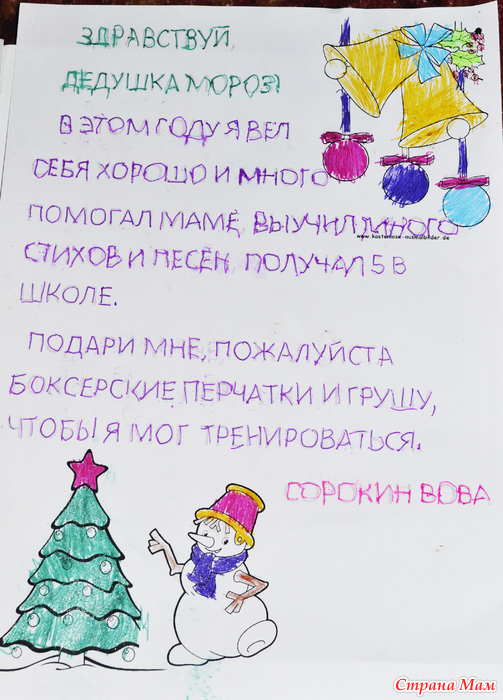 ЗДРАВСТВУЙ,
ДЕДУШКА МОРОЗ!
В ЭТОМ ГОДУ Я ВЕЛ
СЕБЯ ХОРОШО И МНОГО
ПОМОГАЛ МАМЕ, ВЫУЧИЛ МНОГО
www.kostenlose-ausmalbilder.de
СТИХОВ И ПЕСЕН, ПОЛУЧАЛ 5 В
ШКОЛЕ.
ПОДАРИ МНЕ, ПОЖАЛУЙСТА
БОКСЕРСКИЕ ПЕРЧАТКИ И ГРУШУ,
ЧТОБЫ Я МОГ ТРЕНИРОВАТЬСЯ.
СОРОКИН ВОВА
Страна Мам